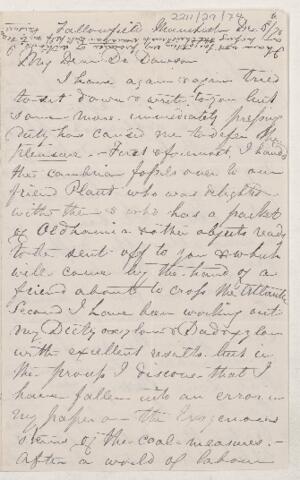 2211/29/74
Fallowfield Manchester Dec 5/72
My Dear Dr Dawson
I have again & again tried
to sit down & write to you but
some more immediately pressing
duty has caused me to defer the
pleasure. - First & foremost, I handed
the Cambrian fossils over to our
friend Plant who was delighted
with them & who has a packet
of Oldhamia & other objects ready
to be sent off to you & which
will come by the hand of a
friend about to cross the Atlantic
Second I have been working out
my Dictyoxylons & Dadoxylons
with excellent results but in
the process I discover that I
have fallen into an error in
my paper on the Exogenous
stems of the coal-measures. -
After a world of labour